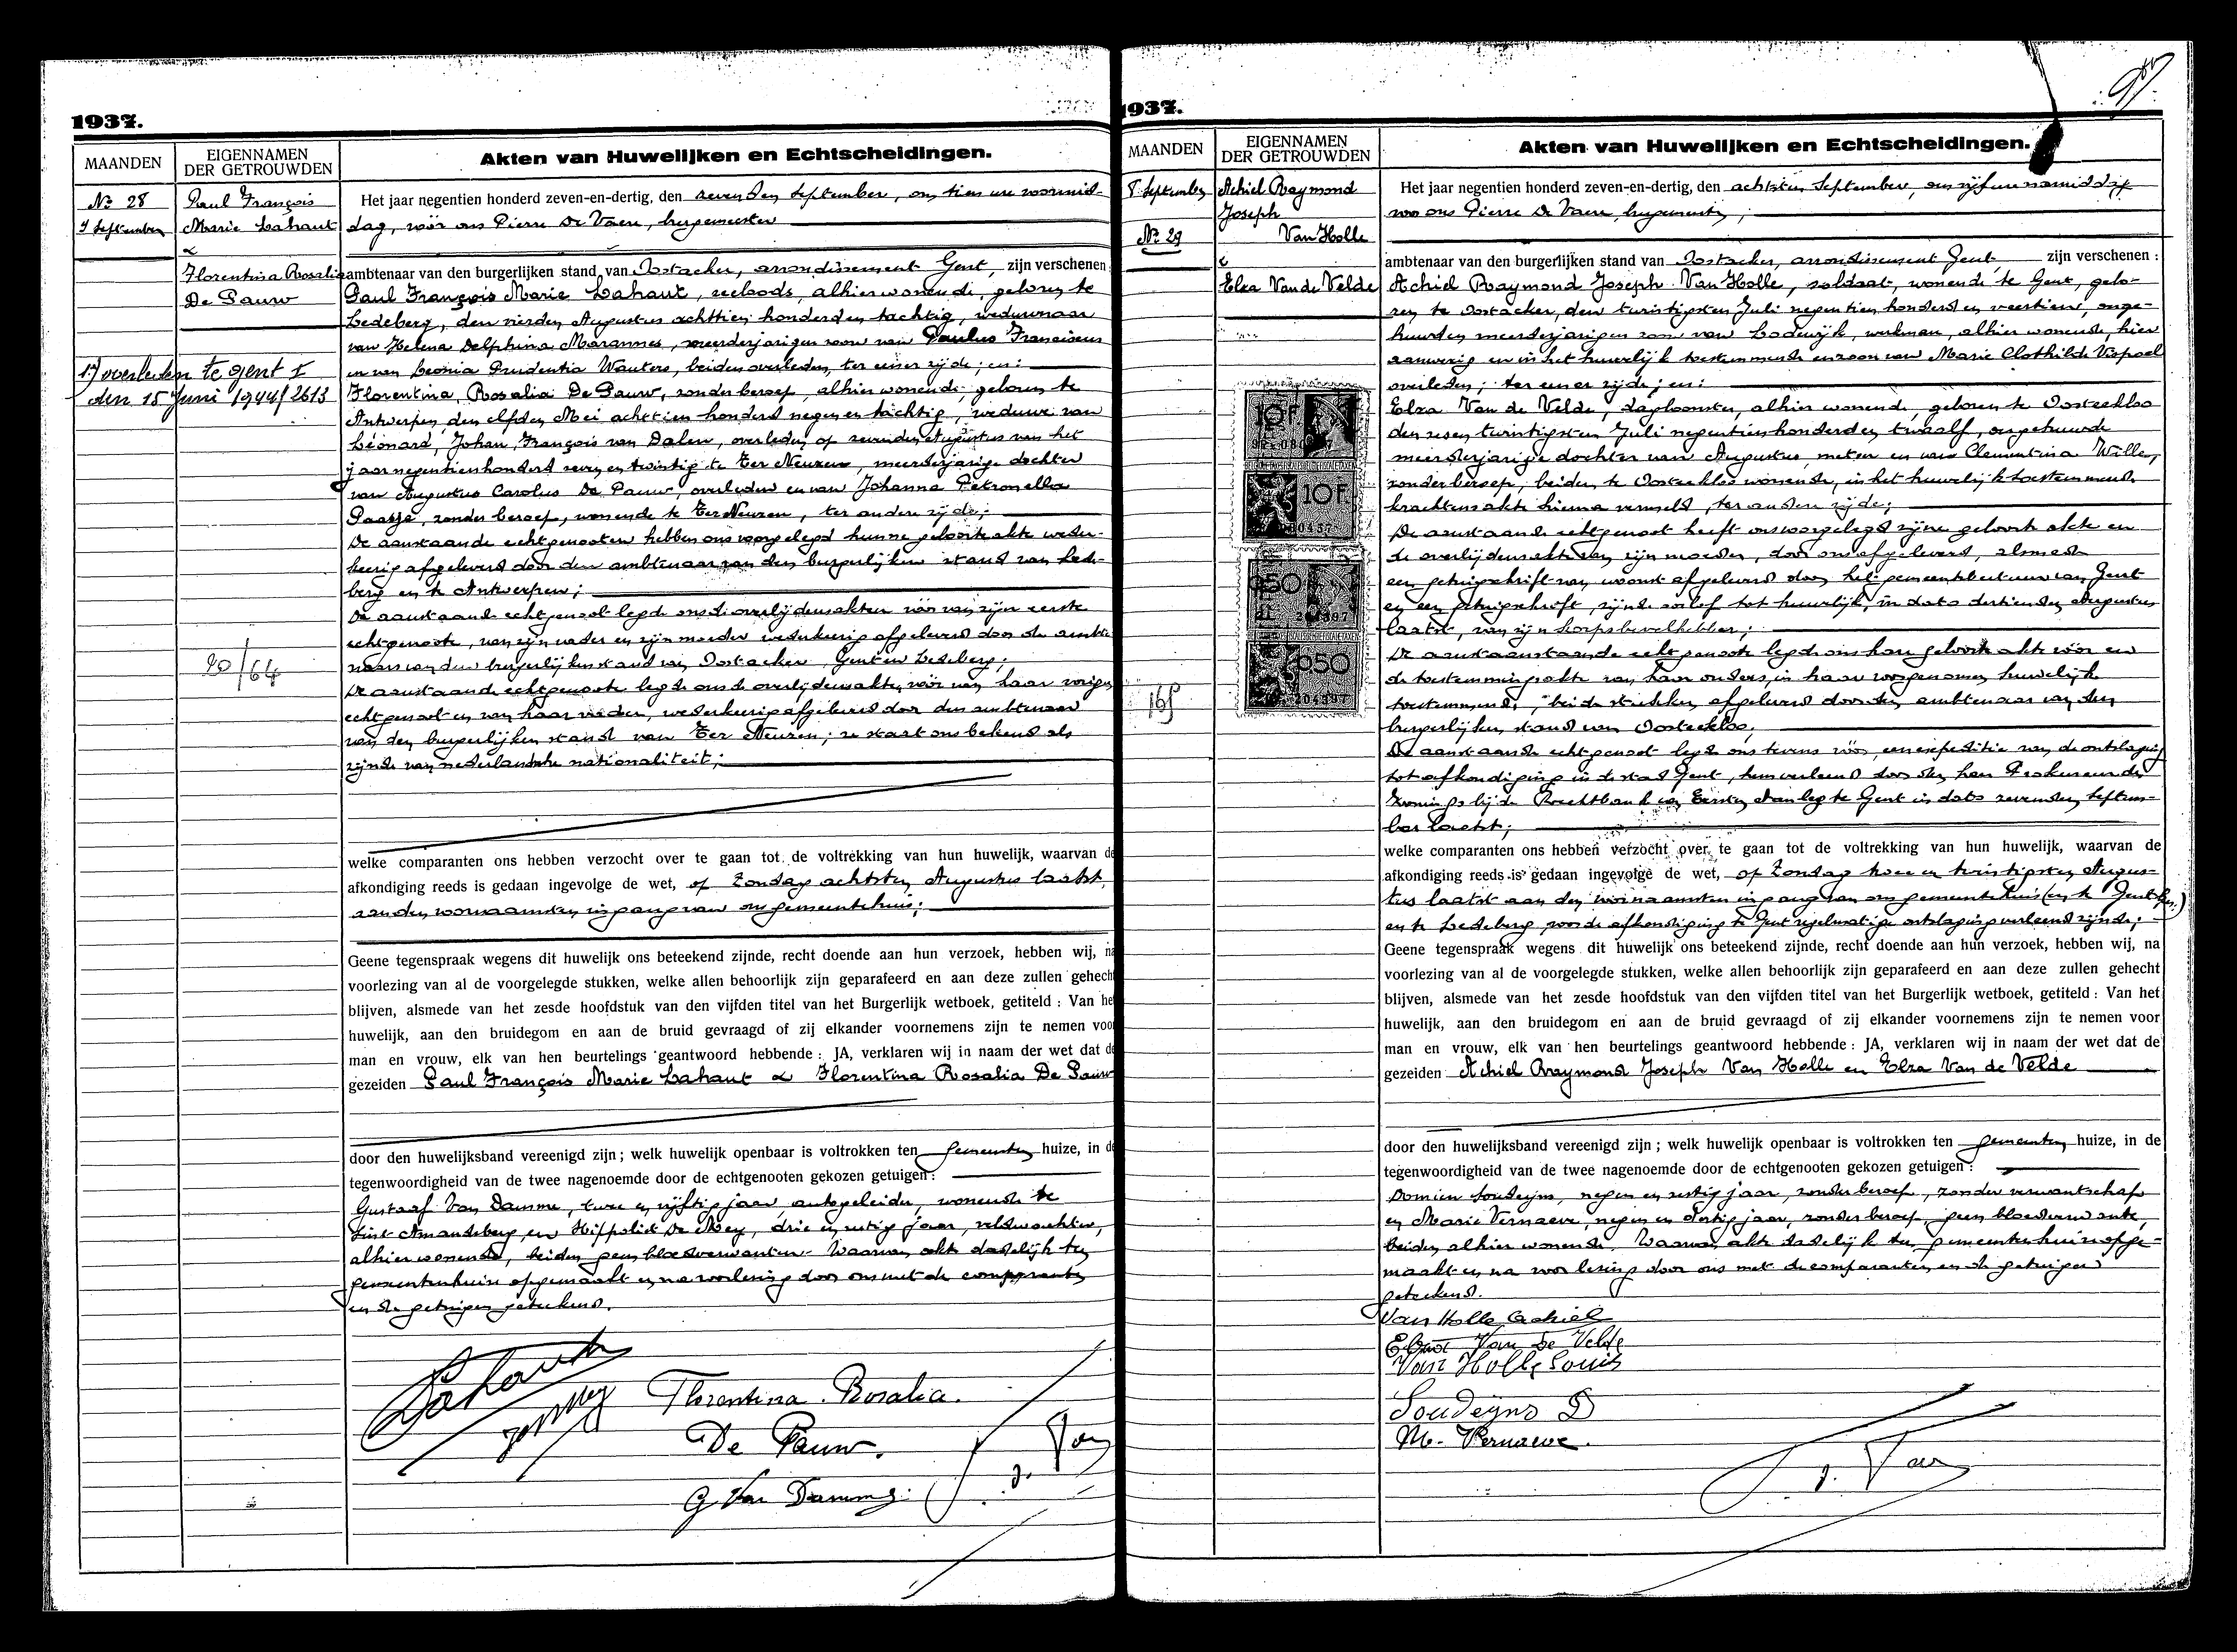 1937.
MAANDEN
EIGENNAMEN
DER GETROUWDEN
Akten van Huwelijken en Echtscheidingen.
No 28
7 September
Paul François
Marie Lahaut
&
Florentina Rosalia
De Pauw
1) overleden te gent I
den 15 Juni 1944/2613
20/64
Het jaar negentien honderd zeven-en-dertig, den zevenden September, om tien ure voormid-
dag, vóór ons Pierre De Vaere, burgemeester
ambtenaar van den burgerlijken stand van Oostacker, arrondissement Gent, zijn verschenen
Paul François Marie Lahaut, alhier wonende, geboren te
Ledeberg, den vierden Augustus achttien honderd en tachtig, weduwnaar
van Helena Delphina Marannes, meerderjarigen zoon van Paulus Franciscus
en van Leonia Prudentia Wauters, beiden overleden, ter eener zijde; en:
Florentina, Rosalia De Pauw, zonder beroep, alhier wonende, geboren te
Antwerpen, den elfden Mei achttien honderd negen en tachtig, weduwe van
Léonard, Johan, François van Dalen, overleden op zevenden Augustus van het
jaar negentienhonderd zeven en twintig te Ter Neuzen, meerderjarige dochter
van Augustus Carolus De Pauw, overleden en van Johanna Petronella
Paasje, zonder beroep, wonende te Ter Neuzen, ter andere zijde;
De aanstaande echtgenooten hebben ons voorgelegd hunne geboorteakte weder-
keerig afgeleverd door den ambtenaar van den burgerlijken stand van Lede-
berg en te Antwerpen;
De aanstaande echtgenoot legde ons de overlijdensakten vóór van zijn eerste
echtgenoote, van zijn vader en zijn moeder wederkeerig afgeleverd door de ambte-
naars van den burgerlijken stand van Oostacker, Gent en Ledeberg;
De aanstaande echtgenoote legde ons de overlijdensakten vóór van haar vorigen
echtgenoot en van haar vader, wederkeerig afgeleverd door den ambtenaar
van den burgerlijken stand van Ter Neuzen; ze staat ons bekend als
zijnde van nederlandsche nationaliteit;
welke comparanten ons hebben verzocht over te gaan tot de voltrekking van hun huwelijk, waarvan de
afkondiging reeds is gedaan ingevolge de wet, op Zondag achtsten Augustus laatst
aan den voornaamsten ingang van ons gemeentehuis;
Geene tegenspraak wegens dit huwelijk ons beteekend zijnde, recht doende aan hun verzoek, hebben wij, na
voorlezing van al de voorgelegde stukken, welke allen behoorlijk zijn geparafeerd en aan deze zullen gehecht
blijven, alsmede van het zesde hoofdstuk van den vijfden titel van het Burgerlijk wetboek, getiteld : Van het
huwelijk, aan den bruidegom en aan de bruid gevraagd of zij elkander voornemens zijn te nemen voor
man en vrouw, elk van hen beurtelings geantwoord hebbende : JA, verklaren wij in naam der wet dat de
gezeiden Paul François Marie Lahaut & Florentina Rosalia De Pauw
door den huwelijksband vereenigd zijn ; welk huwelijk openbaar is voltrokken ten gemeenten huize, in de
tegenwoordigheid van de twee nagenoemde door de echtgenooten gekozen getuigen :
Gustaaf Van Damme, twee en vijftig jaar, autogeleider, wonende te
Sint Amandsberg en Hippoliet De Mey, drie en zestig jaar, veldwachter,
alhier wonende, beiden geen bloedverwanten. Waarvan akte dadelijk ten
gemeentenhuize opgemaakt en na voorlezing door ons met de comparanten
en de getuigen geteekend.
Lahaut
Florentina. Rosalia.
De Pauw.
G Van Damme
1937.
97
MAANDEN
EIGENNAMEN
DER GETROUWDEN
Akten van Huwelijken en Echtscheidingen.
8 September
No 29
Achiel Raymond
Joseph
Van Holle
&
Elza Van de Velde
10F
10F
050
050
165
Het jaar negentien honderd zeven-en-dertig, den achtsten September, om vijf ure namiddag
voor ons Pierre De Vaere, burgemeester,
ambtenaar van den burgerlijken stand van Oostacker, arrondissement Gent, zijn verschenen :
Achiel Raymond Joseph Van Holle, soldaat, wonende te Gent, gebo-
ren te Oostacker, den twintigsten Juli negentien honderd en veertien, onge-
huwden meerderjarigen zoon van Lodewijk, werkman, alhier wonende, hier
aanwezig en in het huwelijk toestemmende en zoon van Marie Clothilde
overleden; ter eener zijde; en:
Elza Van de Velde, dagloonster, alhier wonende, geboren te Oosteekloo
den zesen twintigsten Juli negentienhonderd en twaalf, ongehuwde
meerderjarige dochter van Augustus, metser en van Clementina Wille,
zonder beroep, beiden te Oosteekloo wonende, in het huwelijk toestemmende
krachtens akte hierna vermeld, ter andere zijde;
De aanstaande echtgenoot heeft ons voorgelegd zijne geboorte akte en
de overlijdensakte van zijn moeder, door ons afgeleverd, alsmede
een getuigschrift van woonst afgeleverd door het gemeentebestuur van Gent
en een getuigschrift, zijnde oorlof tot huwelijk, in dato dertienden Augustus
laatst, van zijn korpsbevelhebber;
De aanstaande echtgenoote legde ons haar geboorte akte vóór en
de toestemmingsakte van haar ouders, in haar voorgenomen huwelijk
toestemmende, beide stukken afgeleverd door den ambtenaar van den
burgerlijken stand van Oosteekloo;
De aanstaande echtgenoot legde ons tevens vóór, eene expeditie van de ontslaging
tot afkondiging in de stad Gent, hem verleend door den heer Prokureur des
Konings bij de Rechtbank van Eersten Aanleg te Gent in dato zevenden Septem-
ber laatst;
welke comparanten ons hebben verzocht over te gaan tot de voltrekking van hun huwelijk, waarvan de
afkondiging reeds is gedaan ingevolge de wet, op Zondag twee en twintigsten Augus-
tus laatst aan den voornaamsten ingang van ons gemeentehuis (en te Gent
en te Ledeberg, voor de afkondiging te Gent regelmatige ontslaging verleend zijnde;
Geene tegenspraak wegens dit huwelijk ons beteekend zijnde, recht doende aan hun verzoek, hebben wij, na
voorlezing van al de voorgelegde stukken, welke allen behoorlijk zijn geparafeerd en aan deze zullen gehecht
blijven, alsmede van het zesde hoofdstuk van den vijfden titel van het Burgerlijk wetboek, getiteld : Van het
huwelijk, aan den bruidegom en aan de bruid gevraagd of zij elkander voornemens zijn te nemen voor
man en vrouw, elk van hen beurtelings geantwoord hebbende : JA, verklaren wij in naam der wet dat de
gezeiden Achiel Raymond Joseph Van Holle en Elza Van de Velde
door den huwelijksband vereenigd zijn ; welk huwelijk openbaar is voltrokken ten gemeenten huize, in de
tegenwoordigheid van de twee nagenoemde door de echtgenooten gekozen getuigen :
Domien Soudeyns, negen en zestig jaar, zonder beroep, zonder verwantschap
en Marie Vernaeve, negen en dertig jaar, zonder beroep, geen bloedverwante,
beiden alhier wonende. Waarvan akte dadelijk ten gemeentenhuize opge-
maakt en na voorlezing door ons met de comparanten en de getuigen
geteekend.
Van Holle Achiel
Elza Van de Velde
Van Holle Louis
Soudeyns D
M. Vernaeve.